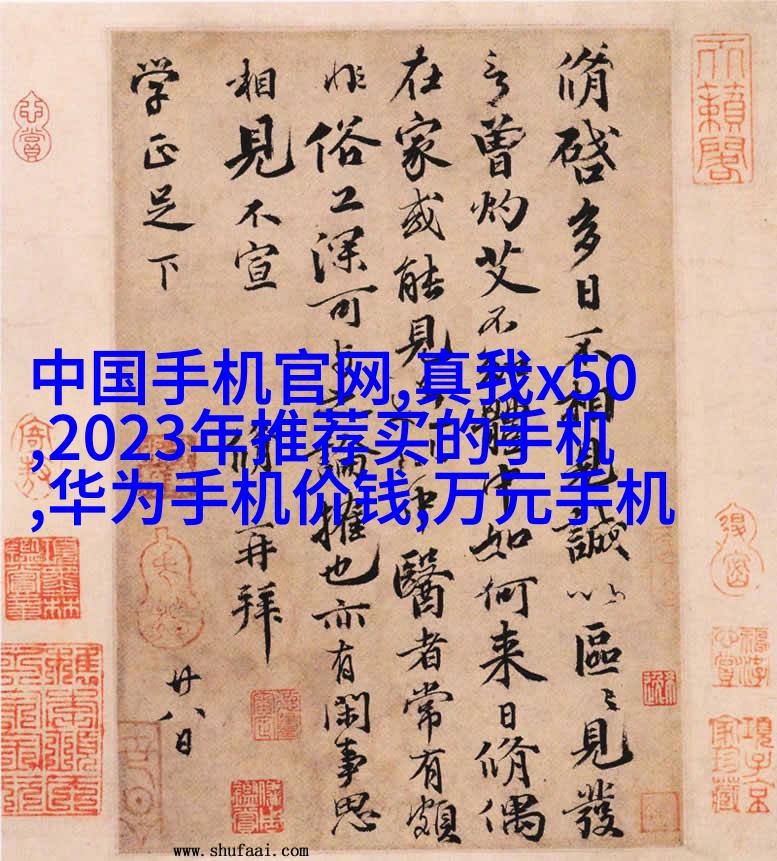 脩啓多日不相見誠以區〻見發
言曾灼艾不知體中如何来日脩偶
在家或能見過此中醫者常有頗
非俗工深可與之論搉也亦有閑事思
相見不宣 脩再拜
学正足下 廿八日
天籟閣
中国手机官网,真我x50
,2023年推荐买的手机
,华为手机价钱,万元手机
www.shufaai.com